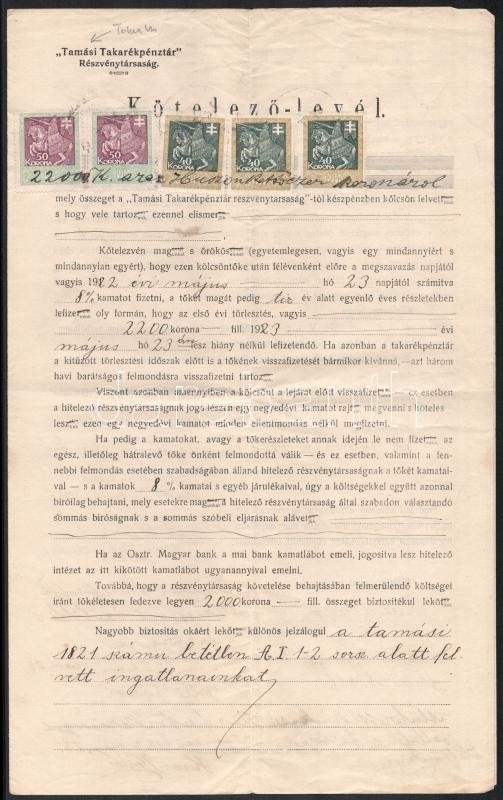 Tolna
„Tamási Takarékpénztár"
Részvénytársaság.
Kötelező-levél.
50 KORONA 50 KORONA 40 KORONA 40 KORONA 40 KORONA
22000 K. azaz Huszonkettőezer koronáról
mely összeget a „Tamási Takarékpénztár részvénytársaság"-tól készpénzben kölcsön felvet
s hogy vele tartoz ezennel elismer
Kötelezvén mag s örökös (egyetemlegesen, vagyis egy mindannyiért s
mindnyájan egyért), hogy ezen kölcsöntőke után félévenként előre a megszavazás napjától
vagyis 1922 évi május hó 23 napjától számítva
8% kamatot fizetni, a tőkét magát pedig tiz év alatt egyenlő éves részletekben
lefizet oly formán, hogy az első évi törlesztés, vagyis
2200 korona fill. 1923 évi
május hó 23 án lesz hiány nélkül lefizetendő. Ha azonban a takarékpénztár
a kitűzött törlesztési időszak előtt is a tőkének visszafizetését bármikor kívánná,—azt három
havi barátságos felmondásra visszafizetni tartoz
Viszont azonban hitelezőnek, a kölcsönt a lejárat előtt visszafizet ez esetben
a hitelező részvénytársaságnak joga leszen egy negyedévi kamatot rajt megvenni s köteles
lesz ezen egy negyedévi kamatot minden ellentmondás nélkül megfizetni.
Ha pedig a kamatokat, avagy a tőkerészleteket annak idején le nem fizet az
egész, illetőleg hátralevő tőke önként felmondottá válik — és ez esetben, valamint a fen-
nebbi felmondás esetében szabadságában álland hitelező részvénytársaságnak a tőkét kamatai-
val — s a kamatok 8 % kamatai s egyéb járulékaival, úgy a költségekkel együtt azonnal
biróilag behajtani, mely esetekre mag a hitelező részvénytársaság által szabadon választandó
sommás biróságnak s a sommás szóbeli eljárásnak alávet
Ha az Osztr. Magyar bank a mai bank kamatlábot emeli, jogositva lesz hitelező
intézet az itt kikötött kamatlábot ugyanannyival emelni.
Továbbá, hogy a részvénytársaság követelése behajtásában felmerülendő költségei
iránt tökéletesen fedezve legyen 2000 korona — fill. összeget biztositékul leköt
Nagyobb biztositás okáért leköt különös jelzálogul a tamási
1821 számu betétben A. I. 1-2 sorsz. alatt fel-
vett ingatlanainkat